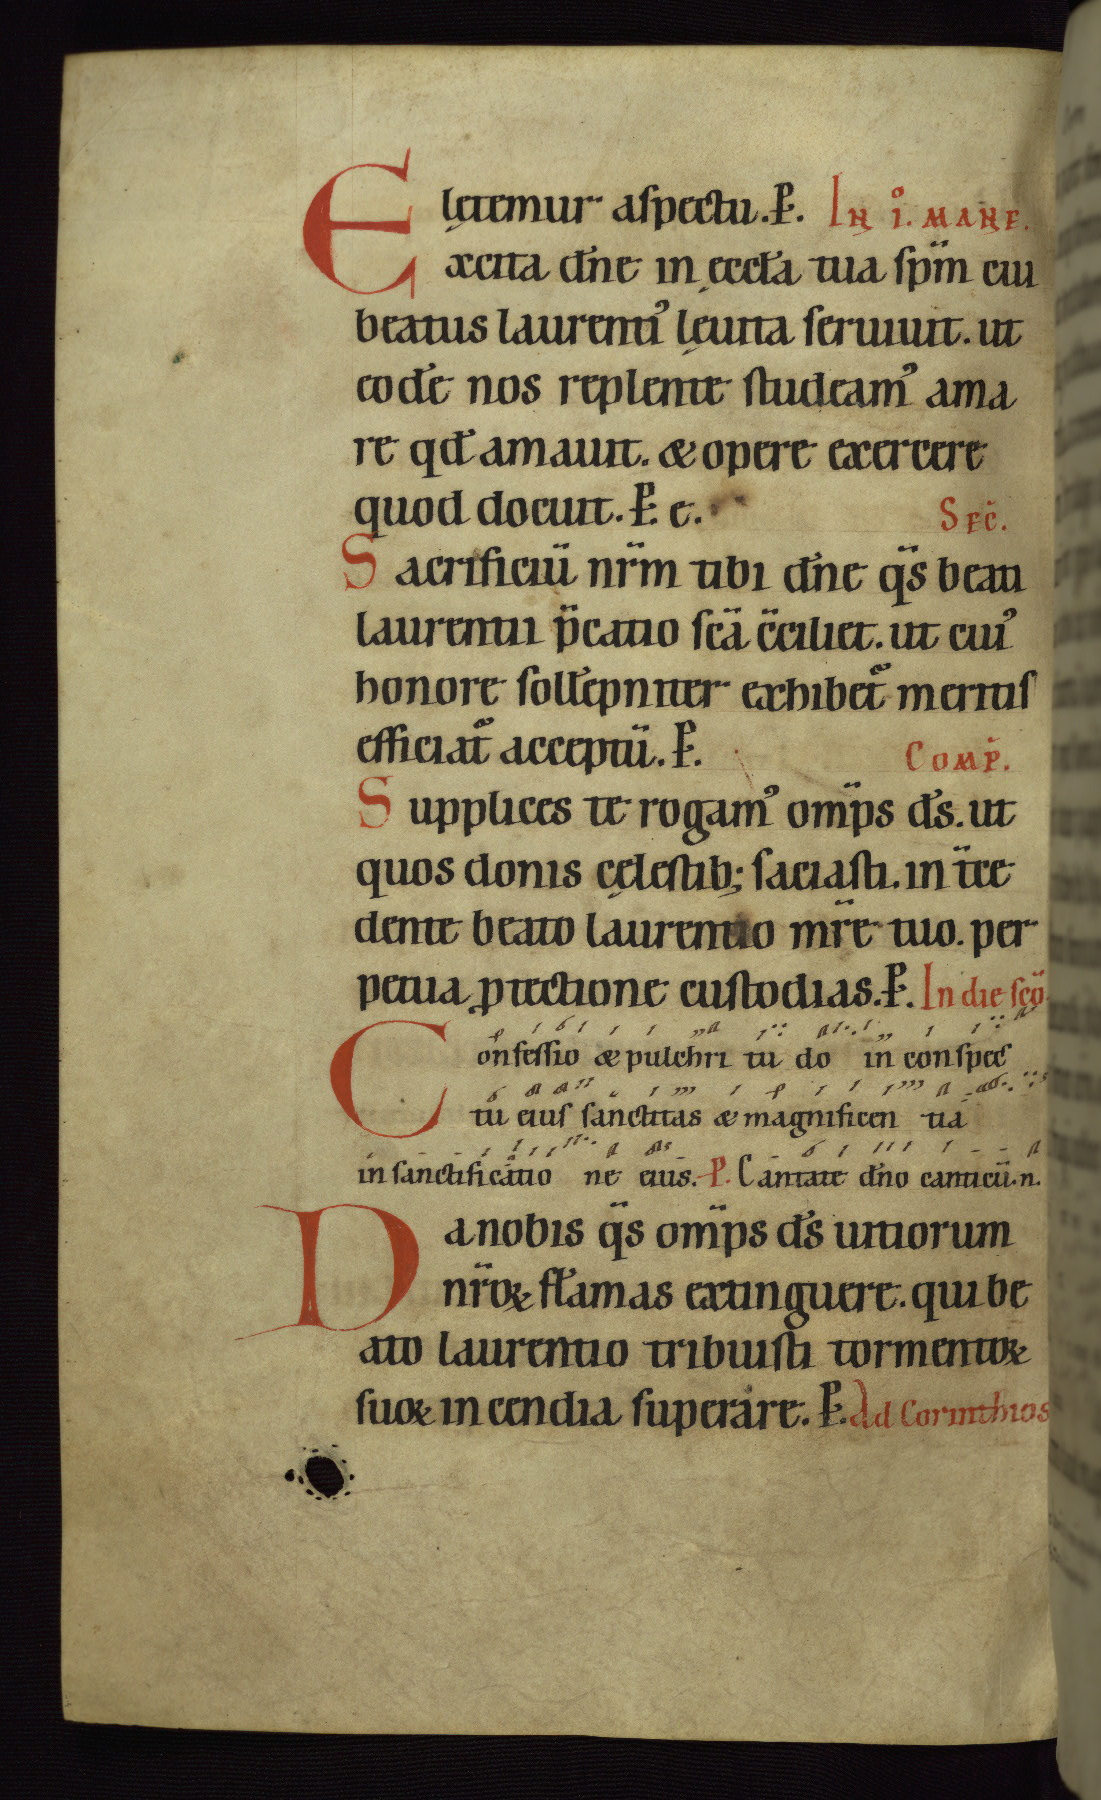 lętemur aspectu. P. In i. mane.
Excita dn̄e in ęccl̄a tua sp̄m cui
beatus laurenti᾿ lęuita seruiuit. ut
eodē nos replente studeam᾿ ama
re qd̄ amauit. & opere exercere
quod docuit. P. e. Sec̄.
Sacrificiū nr̄m tibi dn̄e q̄s beati
laurentii p̄catio sc̄a c̄ciliet. ut cui᾿
honore soll̄epniter exhibet̄ meritis
efficiat̄ acceptū. P. Comp̄.
Supplices te rogam᾿ omp̄s ds̄. ut
quos donis cęlestib; saciasti. in t̄ce
dente beato laurentio mr̄e tuo. per
petua ꝓtectione custodias. P. In die sc̄o
Confessio & pulchri tu do in conspec
tu eius sanctitas & magnificen tia
in sanctificatio ne eius. P. Cantate dn̄o canticū. n.
Da nobis q̄s omp̄s ds̄ uitiorum
nr̄oꝝ flāmas extinguere. qui be
ato laurentio tribuisti tormentoꝝ
suoꝝ incendia superare. P. Ad Corinthios